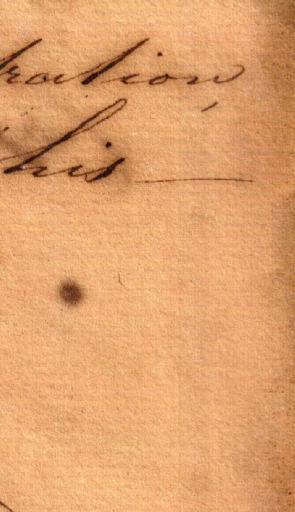 ration,
this —